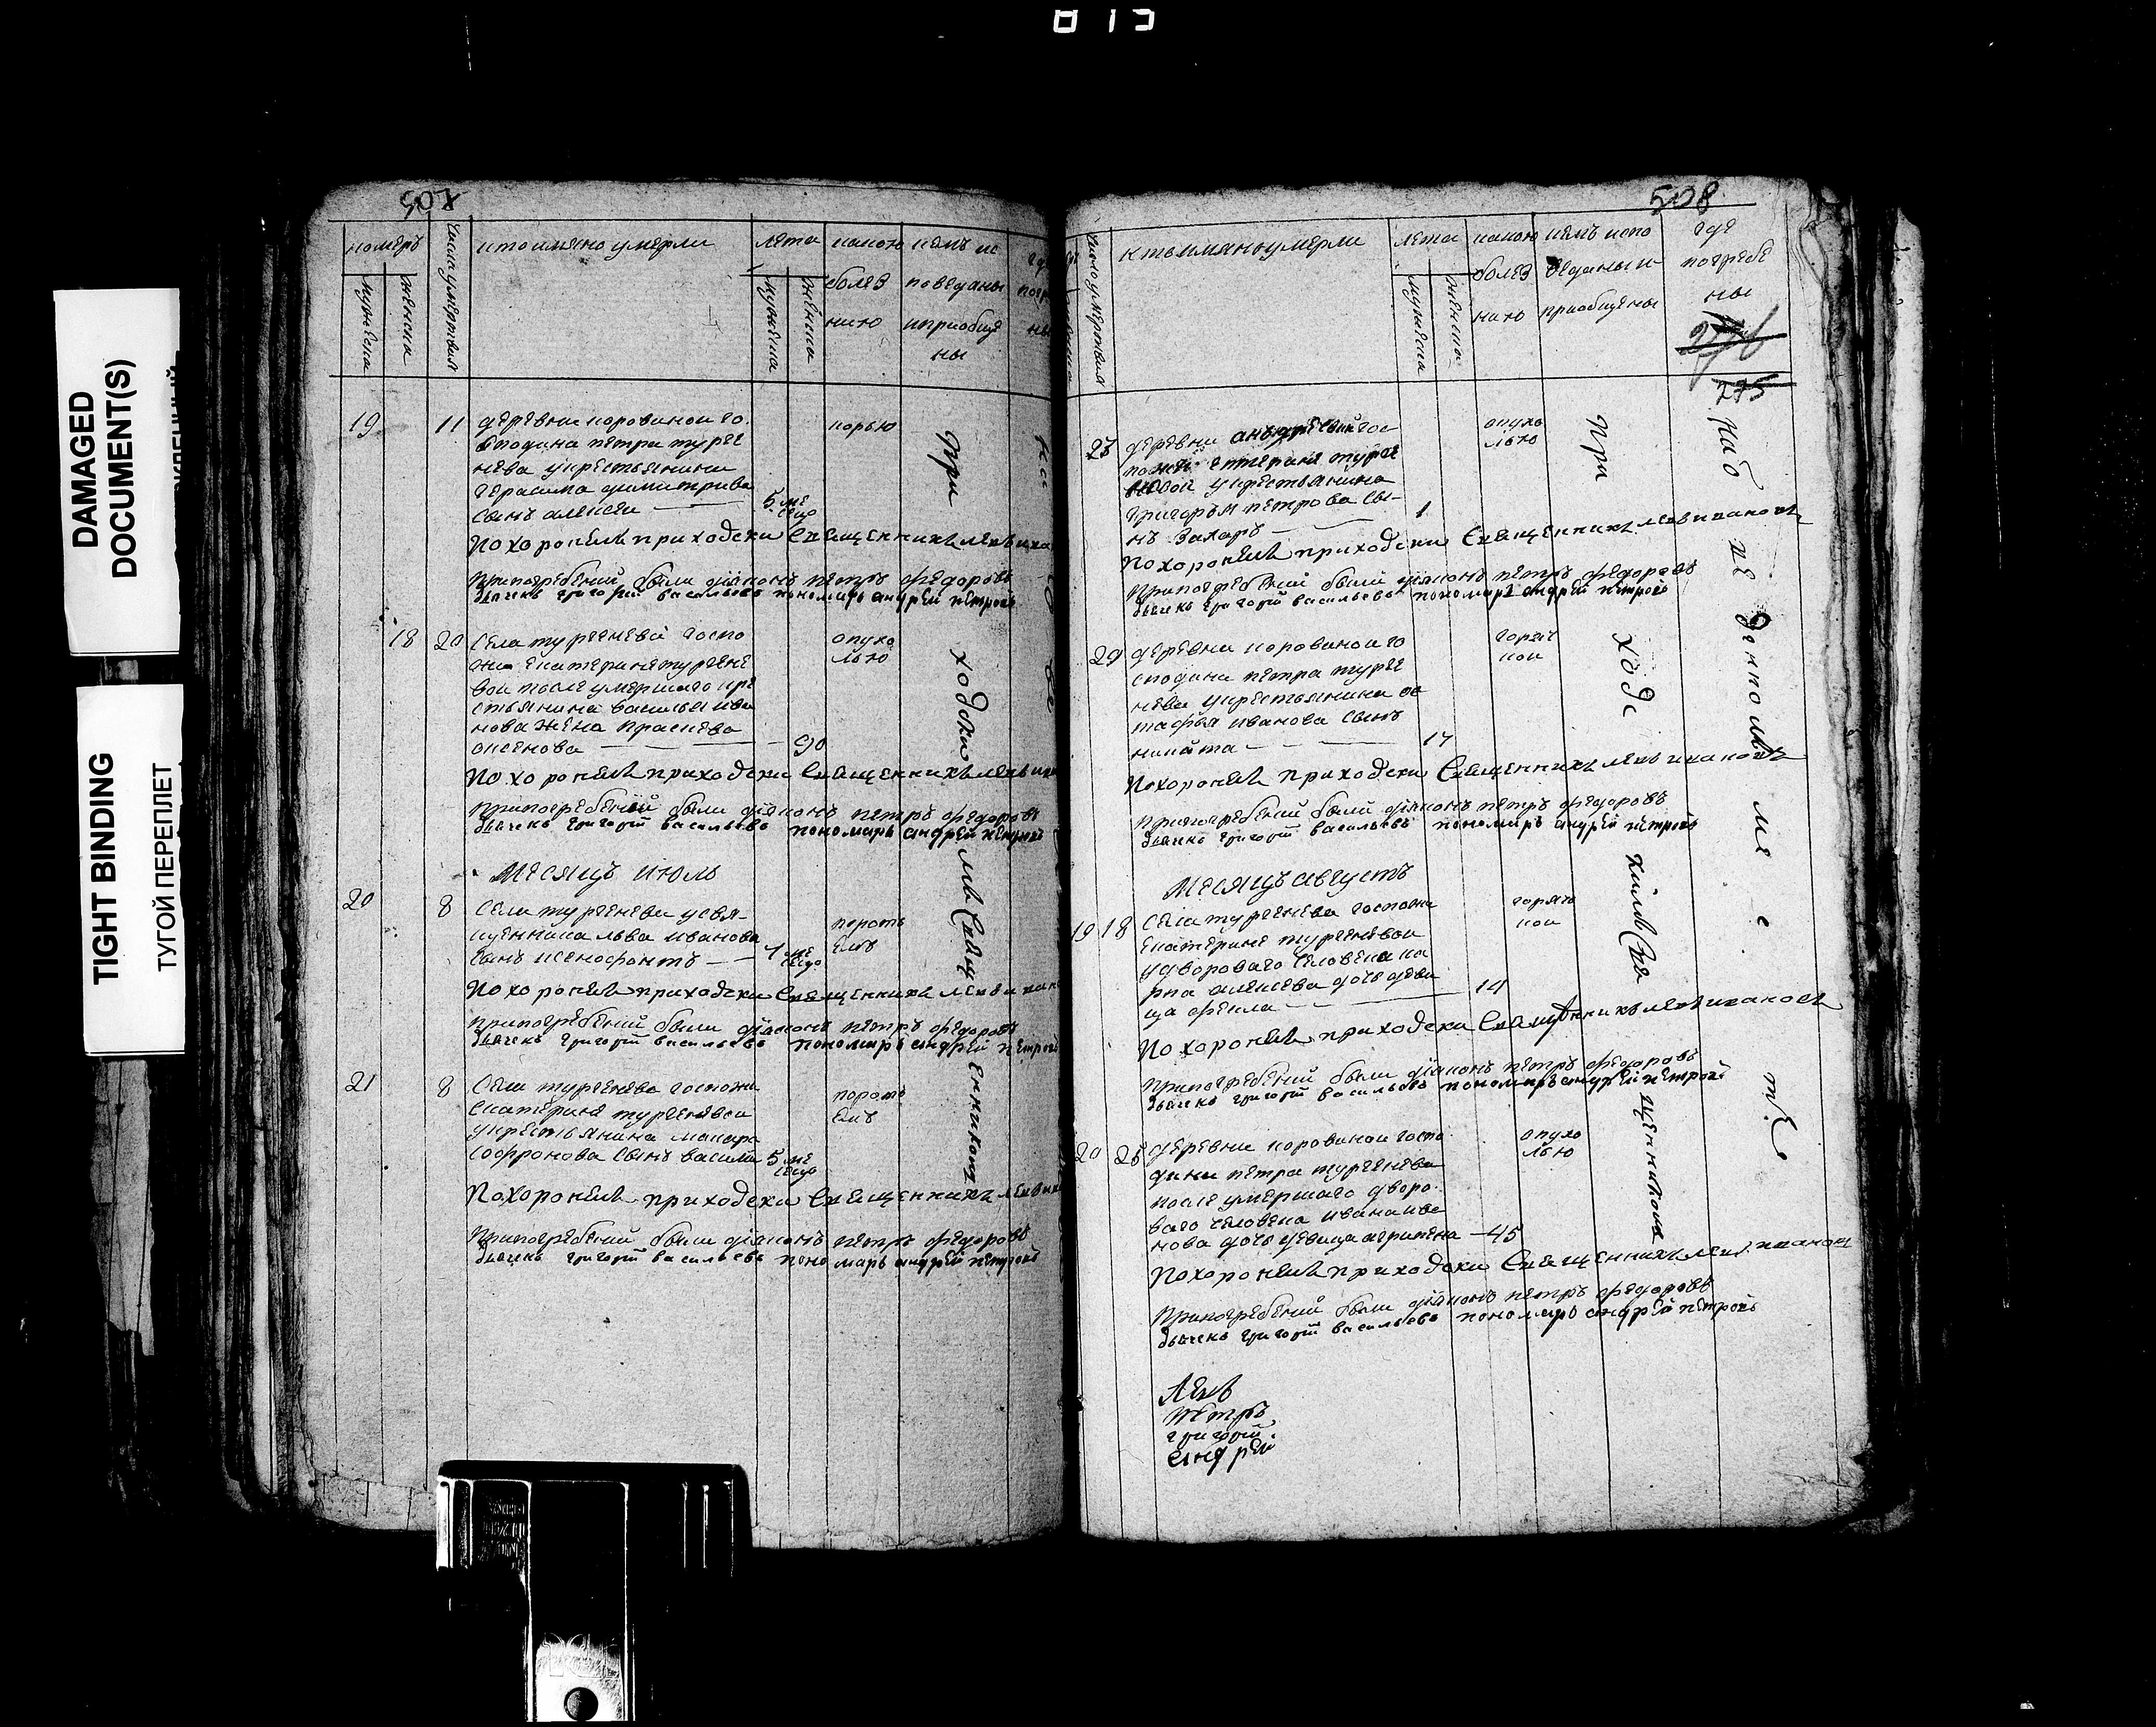 813
DAMAGED
DOCUMENT(S)
TIGHT BINDING
ТУГОЙ ПЕРЕПЛЕТ
507
номеръ
мужеска
женска
число умертвия
кто имяно умерли
лета
мужеска
женска
какою
болез
нию
кемъ ис
поведаны
и приобще
ны
19 11
деревни коровинои го
сподина петра турге
нева укрестьянина
герасима димитрива
сынъ алексеи — 5 ме
сецо
корью
Похоронелъ приходски Священникъ левъ ива
Припогребении были дiяконъ петръ федоровъ
дьячекъ григорiй васильевъ пономарь андрей петровъ
18 20
села тургенева госпо
жи екатерине тургене
вои после умершаго кре
стьянина василья ива
нова жена прасковя
аксенова — 90
опухо
лью
Похоронелъ приходски Священникъ левъ ива
Припогребении были дiяконъ петръ федоровъ
дьячекъ григорiй васильевъ пономарь андрей петровъ
Месяцъ июль
20 8
села тургенева усвя-
щенника льва иванова
сынъ ксенофонтъ — 1 ме
сецо
поротъ
емъ
Похоронелъ приходски Священникъ левъ иван
Припогребении были дiяконъ петръ федоровъ
дьячекъ григорiй васильевъ пономарь андрей петровъ
21 8
села тургенева госпожи
екатерине тургеневои
укрестьянина макара
софронова сынъ василеи 5 ме
сецо
поротъ
емъ
Похоронелъ приходски Священникъ левъ ива
Припогребении были дiяконъ петръ федоровъ
дьячекъ григорiй васильевъ пономарь андрей петровъ
При
ходски
мъ Свящ
енникомъ
508
число умертвия
кто имяно умерли
лета
мужеска
женска
какою
болез
нию
кемъ испо
веданы и
приобщены
где
погребе
ны
275
23
деревни андреевки гос
пожи екатерине турге
невои укрестьянина
григорья петрова сы-
нъ захаръ — 1
опухо
лью
Похоронелъ приходски Священникъ левъ ивановъ
Припогребении были дiяконъ петръ федоровъ
дьячекъ григорiй васильевъ пономарь андрей петровъ
29
деревни коровинои го
сподина петра турге
нева укрестьянина ос
тафья иванова сынъ
никита — 17
горяч
кои
Похоронелъ приходски Священникъ левъ ивановъ
Припогребении были дiяконъ петръ федоровъ
дьячекъ григорiй васильевъ пономарь андрей петровъ
Месяцъ августъ
19 18
села тургенева госпожи
екатерине тургеневои
удвороваго человека ка
рпа алексева дочь деви
ца фекла — 14
горяч
кои
Похоронелъ приходски Священникъ левъ ивановъ
Припогребении были дiяконъ петръ федоровъ
дьячекъ григорiй васильевъ пономарь андрей петровъ
20 25
деревни коровинои госпо
дина петра тургенева
после умершаго дворо
ваго человека ивана ива
нова дочь девица агрипена — 45
опухо
лью
Похоронелъ приходски Священникъ левъ ивановъ
Припогребении были дiяконъ петръ федоровъ
дьячекъ григорiй васильевъ пономарь андрей петровъ
При
ходс
кимъ Свя
щенникомъ
Левъ
петръ
григорiй
андрей